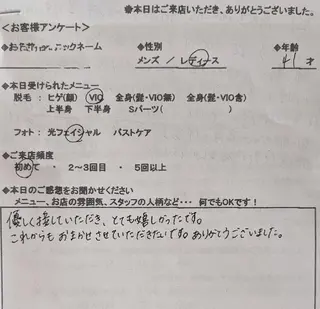 ●本日はご来店いただき、ありがとうございました。
<お客様アンケート>
ックネーム ◆性別 ◆年齢
メンズ / レディース 41 才
◆本日受けられたメニュー
脱毛 : ヒゲ(顔) VIO 全身(髭・VIO無) 全身(髭・VIO含)
上半身 下半身 Sパーツ( )
フォト: 光フェイシャル バストケア
◆ご来店頻度
初めて ・ 2〜3回目 ・ 5回以上
◆本日のご感想をお聞かせください
メニュー、お店の雰囲気、スタッフの人柄など・・・ 何でもOKです!
優しく接していただき、とても嬉しかったです。
これからも おまかせさせていただきたいです。ありがとうございました。